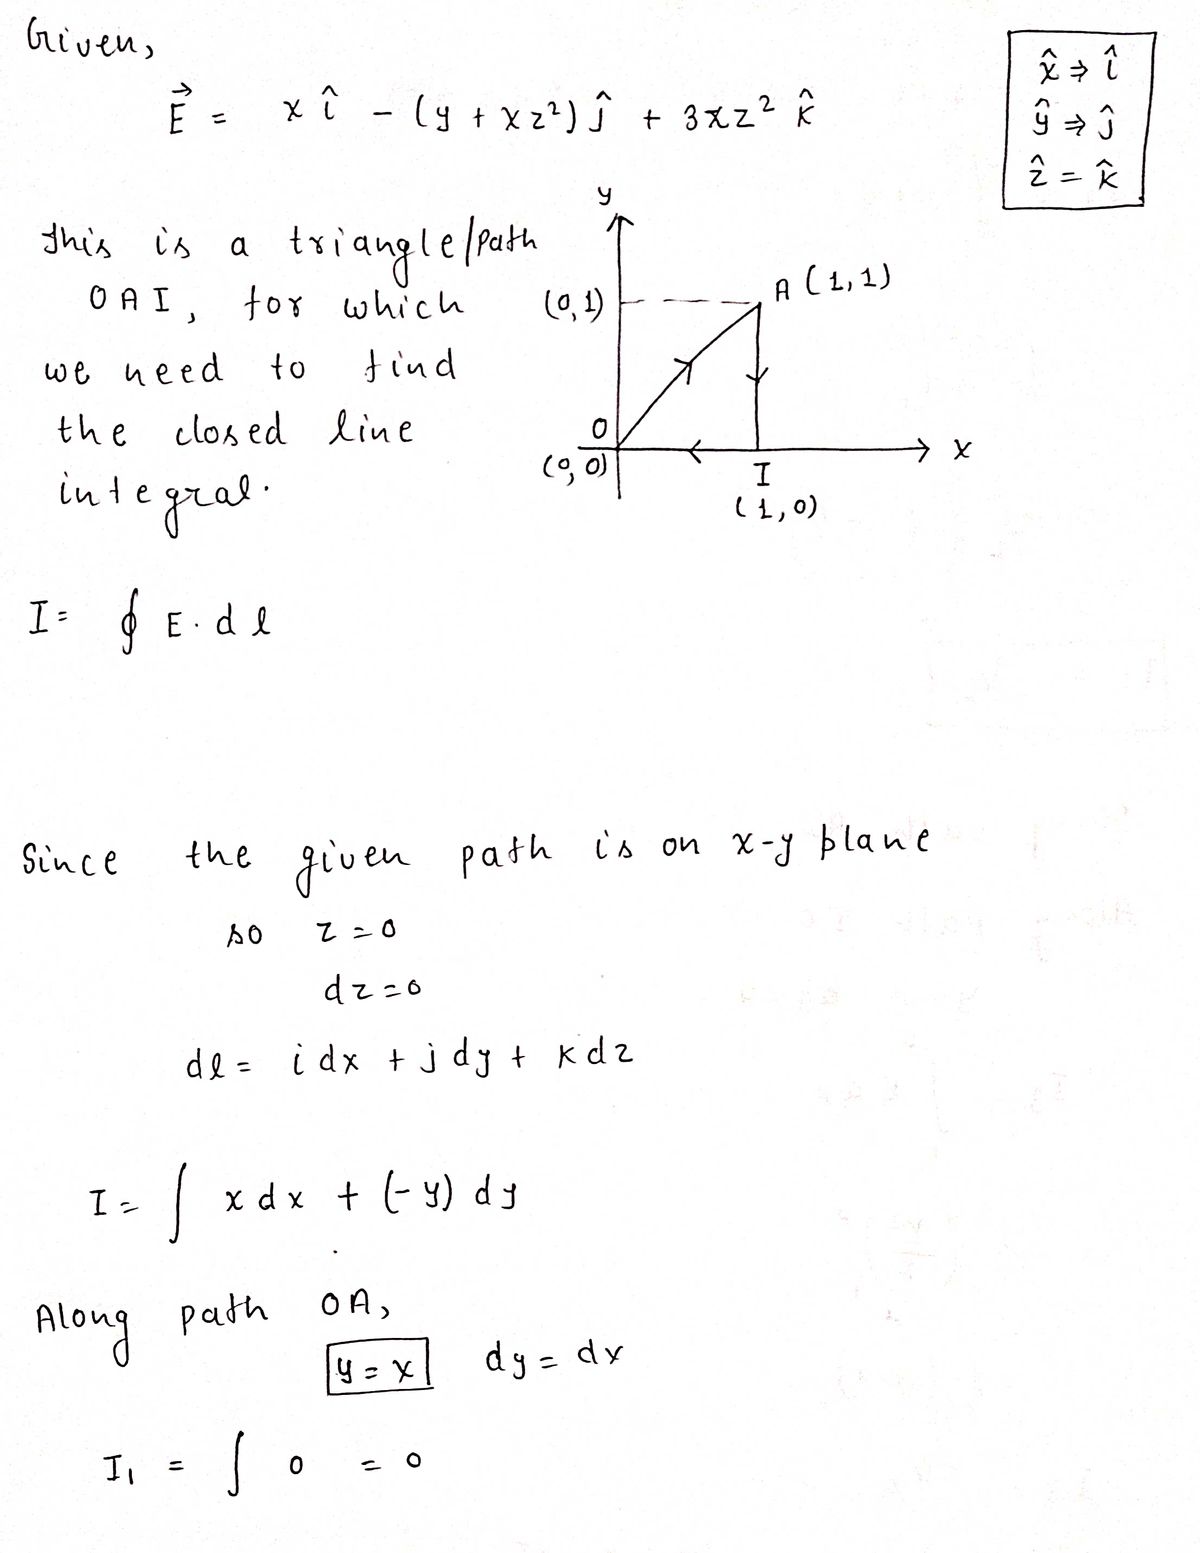 Given,
x̂ ⇒ î
ŷ ⇒ ĵ
ẑ = k̂
E⃗ = x î - (y + xz²) ĵ + 3xz² k̂
This is a triangle/Path
OAI, for which
we need to find
the closed line
integral.
y
(0,1)
A (1,1)
O
(0,0)
I
(1,0)
x
I = ∮ E. dl
Since the given path is on x-y plane
so z = 0
dz = 0
dl = i dx + j dy + k dz
I = ∫ x dx + (-y) dy
Along path OA,
y = x dy = dx
I₁ = ∫ 0 = 0